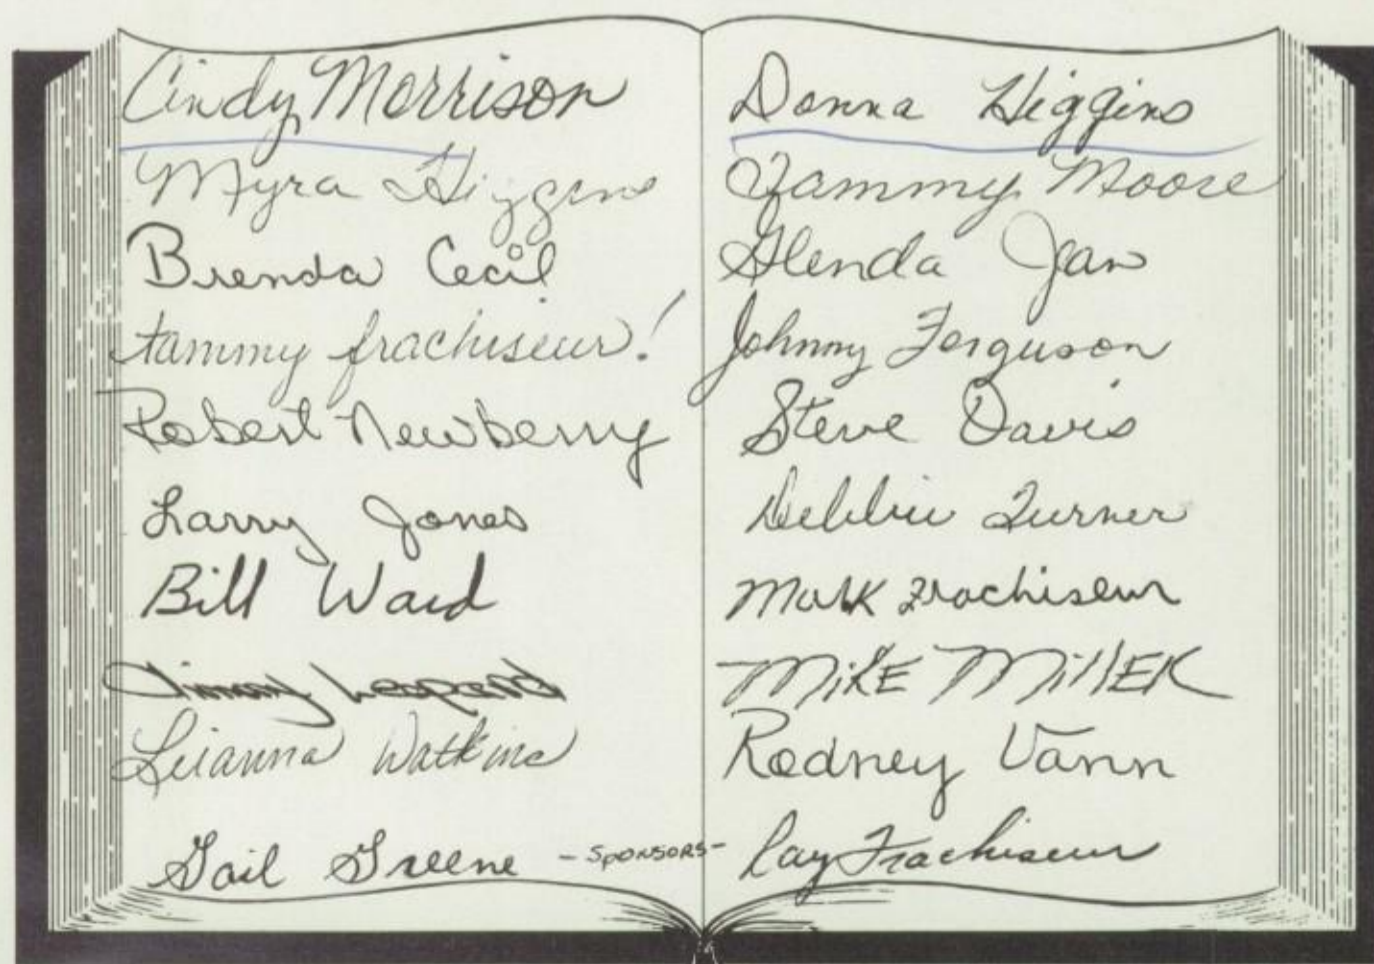 Cindy Morrison
Myra Higgins
Brenda Cecil
tammy frachiseur!
Robert Newberry
Larry Jones
Bill Ward
Jimmy Leopard
Luanna Watkins
Gail Greene
- SPONSORS -
Donna Higgins
Tammy Moore
Glenda Jan
Johnny Ferguson
Steve Davis
Debbie Turner
Mark Frachiseur
MiKE MillER
Rodney Vann
Ray Frachiseur